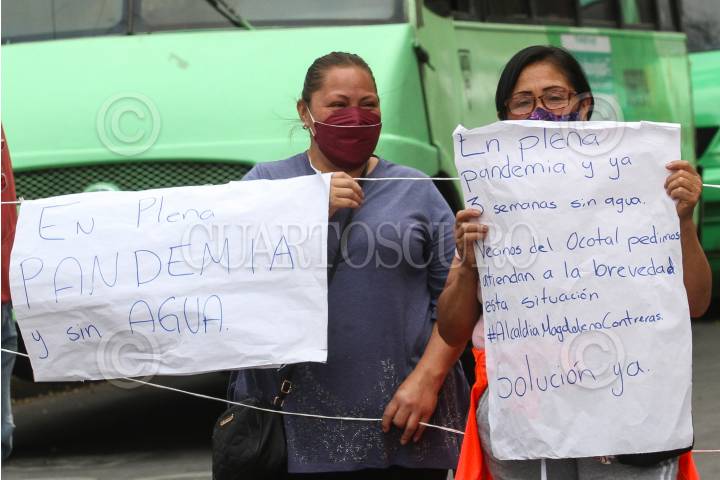 En Plena
PANDEMIA
y sin AGUA.
En plena
pandemia y ya
3 semanas sin agua.
Vecinos del Ocotal pedimos
atiendan a la brevedad
esta situación
#AlcaldiaMagdalenaContreras.
solución ya.
CUARTOSCURO